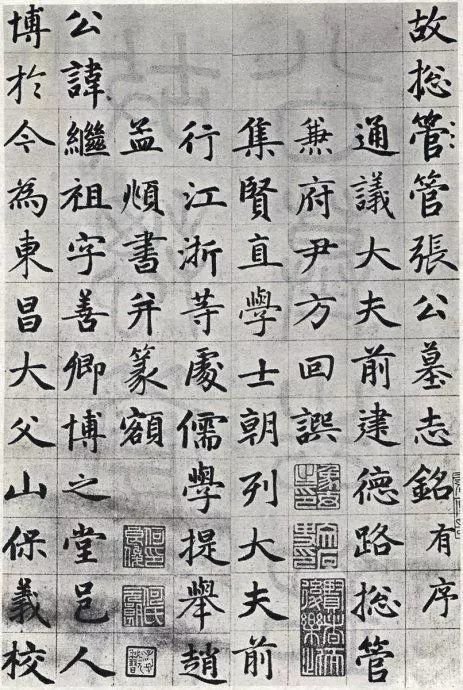 故揔管管張公墓志銘有序
通議大夫前建德路揔管
兼府尹方回譔
集賢直學士朝列大夫前
行江浙等處儒學提舉趙
孟頫書并篆額
公諱繼祖字善卿博之堂邑人
博於今為東昌大父山保義校